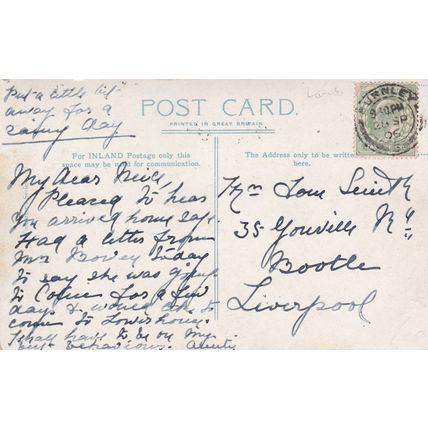 Put a little bit
away for a
rainy day
POST CARD.
PRINTED IN GREAT BRITAIN
For INLAND Postage only this
space may be used for communication.
The Address only to be written
here.
My Dear
Pleased to hear
you arrived home safe.
Had a letter from
Mrs Bovey today
to say she was going
to Colne for a few
days & would like to
come to Lowerhouse.
I shall have to be on my
best behaviour. Aunty
Tom Smith
35 Rd
Bootle
Liverpool
BURNLEY
9 PM
SP